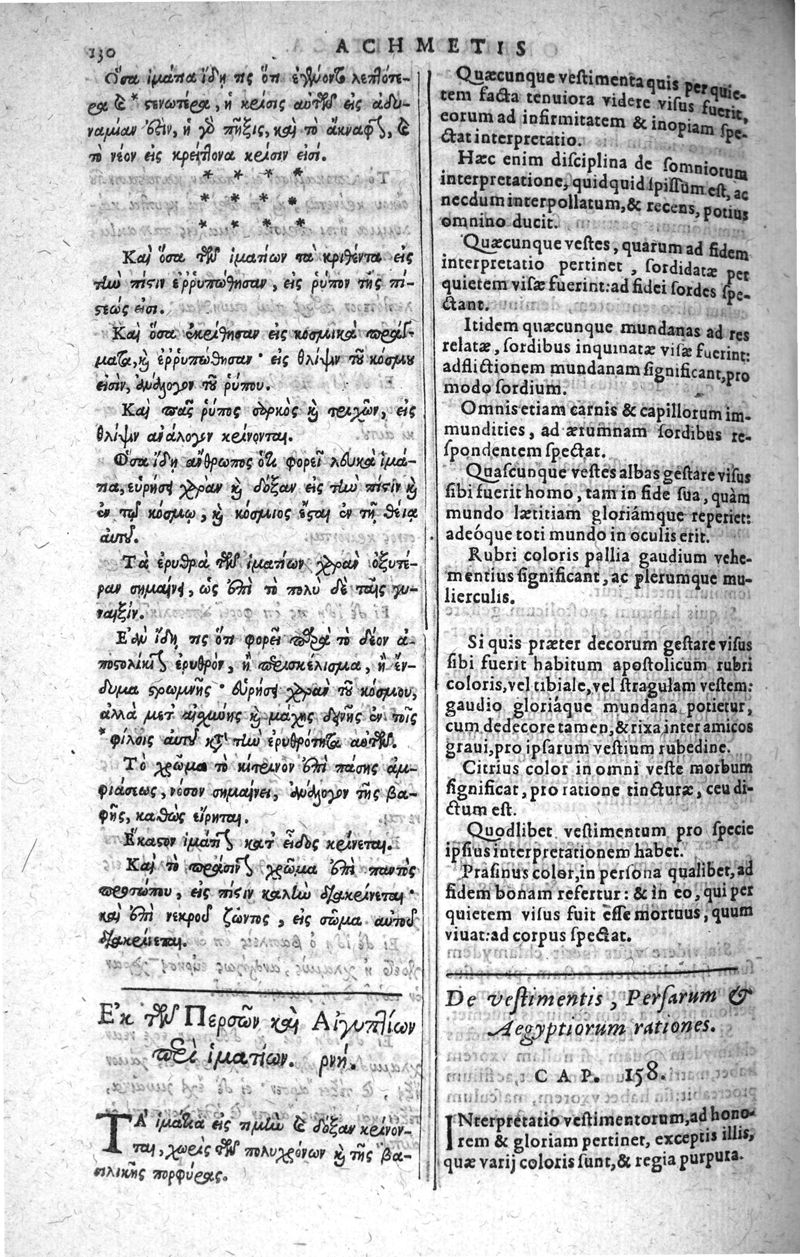 130
ACHMETIS
Ὅσα ἱμάτια ἴδῃ τις ὅτι ἐγένοντο λεπτότε-
ρα & * στενώτερα, ἡ κρίσις αὐτῶν εἰς ἀδυ-
ναμίαν ἐστὶν, ἡ γὰ πῆξις, καὶ τὸ ἄκναφον, &
τὸ νέον εἰς κρείττονα κρίσιν εἰσί.
* * * *
* * * *
* * * *
Καὶ ὅσα τῶν ἱματίων τὰ κριθέντα εἰς
τὴν πίστιν ἐῤῥυπώθησαν, εἰς ῥύπον τῆς πί-
στεώς εἰσι.
Καὶ ὅσα ἐκρίθησαν εἰς κοσμικὰ πράγ-
ματα, καὶ ἐῤῥυπώθησαν· εἰς θλίψιν τοῦ κόσμου
εἰσὶν, ἀνάλογον τοῦ ῥύπου.
Καὶ πᾶς ῥύπος σαρκὸς καὶ τριχῶν, εἰς
θλίψιν ἀνάλογον κρίνονται.
Ὅσα ἴδῃ ἄνθρωπος ὅτι φορεῖ λευκὰ ἱμά-
τια, εὑρήσει χαρὰν καὶ δόξαν εἰς τὴν πίστιν καὶ
ἐν τῷ κόσμῳ, καὶ κόσμιος ἔσται ἐν τῇ θείᾳ
αὐτοῦ.
Τὰ ἐρυθρὰ τῶν ἱματίων χαρὰν ὀξυτέ-
ραν σημαίνει, ὡς ἐπὶ τὸ πολὺ δὲ ταῖς γυ-
ναιξίν.
Ἐὰν ἴδῃ τις ὅτι φορεῖ παρὰ τὸ δέον ἀ-
ποστολικὸν ἐρυθρὸν, ἢ περισκέλισμα, ἢ ἔν-
δυμα στρωμνῆς· εὑρήσει χαρὰν τοῦ κόσμου,
ἀλλὰ μετ' αἰσχύνης καὶ μάχης δεινῆς ἐν τοῖς
* φίλοις αὐτοῦ κατὰ τὴν ἐρυθρότητα αὐτῶν.
Τὸ χρῶμα τὸ κίτρινον ἐπὶ πάσης ἀμ-
φιάσεως, νόσον σημαίνει, ἀνάλογον τῆς βα-
φῆς, καθὼς εἴρηται.
Ἕκαστον ἱμάτιον κατ' εἶδος κρίνεται.
Καὶ τὸ πράσινον χρῶμα ἐπὶ παντὸς
προσώπου, εἰς πίστιν καλὴν διακρίνεται·
καὶ ἐπὶ νεκροῦ ζῶντος, εἰς σῶμα αὐτοῦ
διακρίνεται.
Ἐκ τῶν Περσῶν καὶ Αἰγυπτίων
περὶ ἱματίων. ρνή.
ΤΑ ἱμάτια εἰς τιμὴν & δόξαν κρίνον-
ται, χωρὶς τῶν πολυχρόνων καὶ τῆς βα-
σιλικῆς πορφύρας.
Quæcunque vestimenta quis per quie-
tem facta tenuiora videre visus fuerit,
eorum ad infirmitatem & inopiam spe-
ctat interpretatio.
Hæc enim disciplina de somniorum
interpretatione, quidquid spissum est, ac
necdum interpollatum, & recens, potius
omnino ducit.
Quæcunque vestes, quarum ad fidem
interpretatio pertinet, sordidatæ per
quietem visæ fuerint: ad fidei sordes spe-
ctant.
Itidem quæcunque mundanas ad res
relatæ, sordibus inquinatæ visæ fuerint:
adflictionem mundanam significant, pro
modo sordium.
Omnis etiam carnis & capillorum im-
mundities, ad ærumnam sordibus re-
spondentem spectat.
Quascunque vestes albas gestare visus
sibi fuerit homo, tam in fide sua, quàm
mundo lætitiam gloriámque reperiet:
adeóque toti mundo in oculis erit.
Rubri coloris pallia gaudium vehe-
mentius significant, ac plerumque mu-
lierculis.
Si quis præter decorum gestare visus
sibi fuerit habitum apostolicum rubri
coloris, vel tibiale, vel stragulam vestem:
gaudio gloriáque mundana potietur,
cum dedecore tamen, & rixa inter amicos
graui, pro ipsarum vestium rubedine.
Citrius color in omni veste morbum
significat, pro ratione tincturæ, ceu di-
ctum est.
Quodlibet vestimentum pro specie
ipsius interpretationem habet.
Prasinus color, in persona qualibet, ad
fidem bonam refertur: & in eo, qui per
quietem visus fuit esse mortuus, quum
viuat: ad corpus spectat.
De vestimentis, Persarum &
Aegyptiorum rationes.
CAP. 158.
INterpretatio vestimentorum, ad hono-
rem & gloriam pertinet, exceptis illis,
quæ varij coloris sunt, & regia purpura.